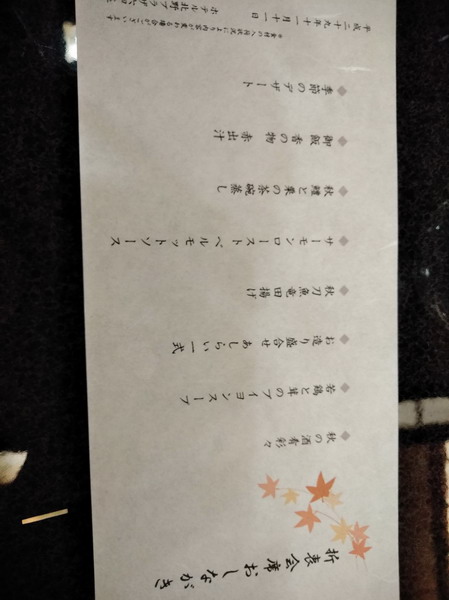 折衷会席おしながき
◆秋の酒肴彩々
◆若鶏と茸のブイヨンスープ
◆お造り盛合せ あしらい一式
◆秋刀魚竜田揚げ
◆サーモンロースト ベルモットソース
◆秋鱧と栗の茶碗蒸し
◆御飯 香の物 赤出汁
◆季節のデザート
※食材の入荷状況により内容が変わる場合がございます
平成二十九年十一月十一日
ホテル北野プラザ六